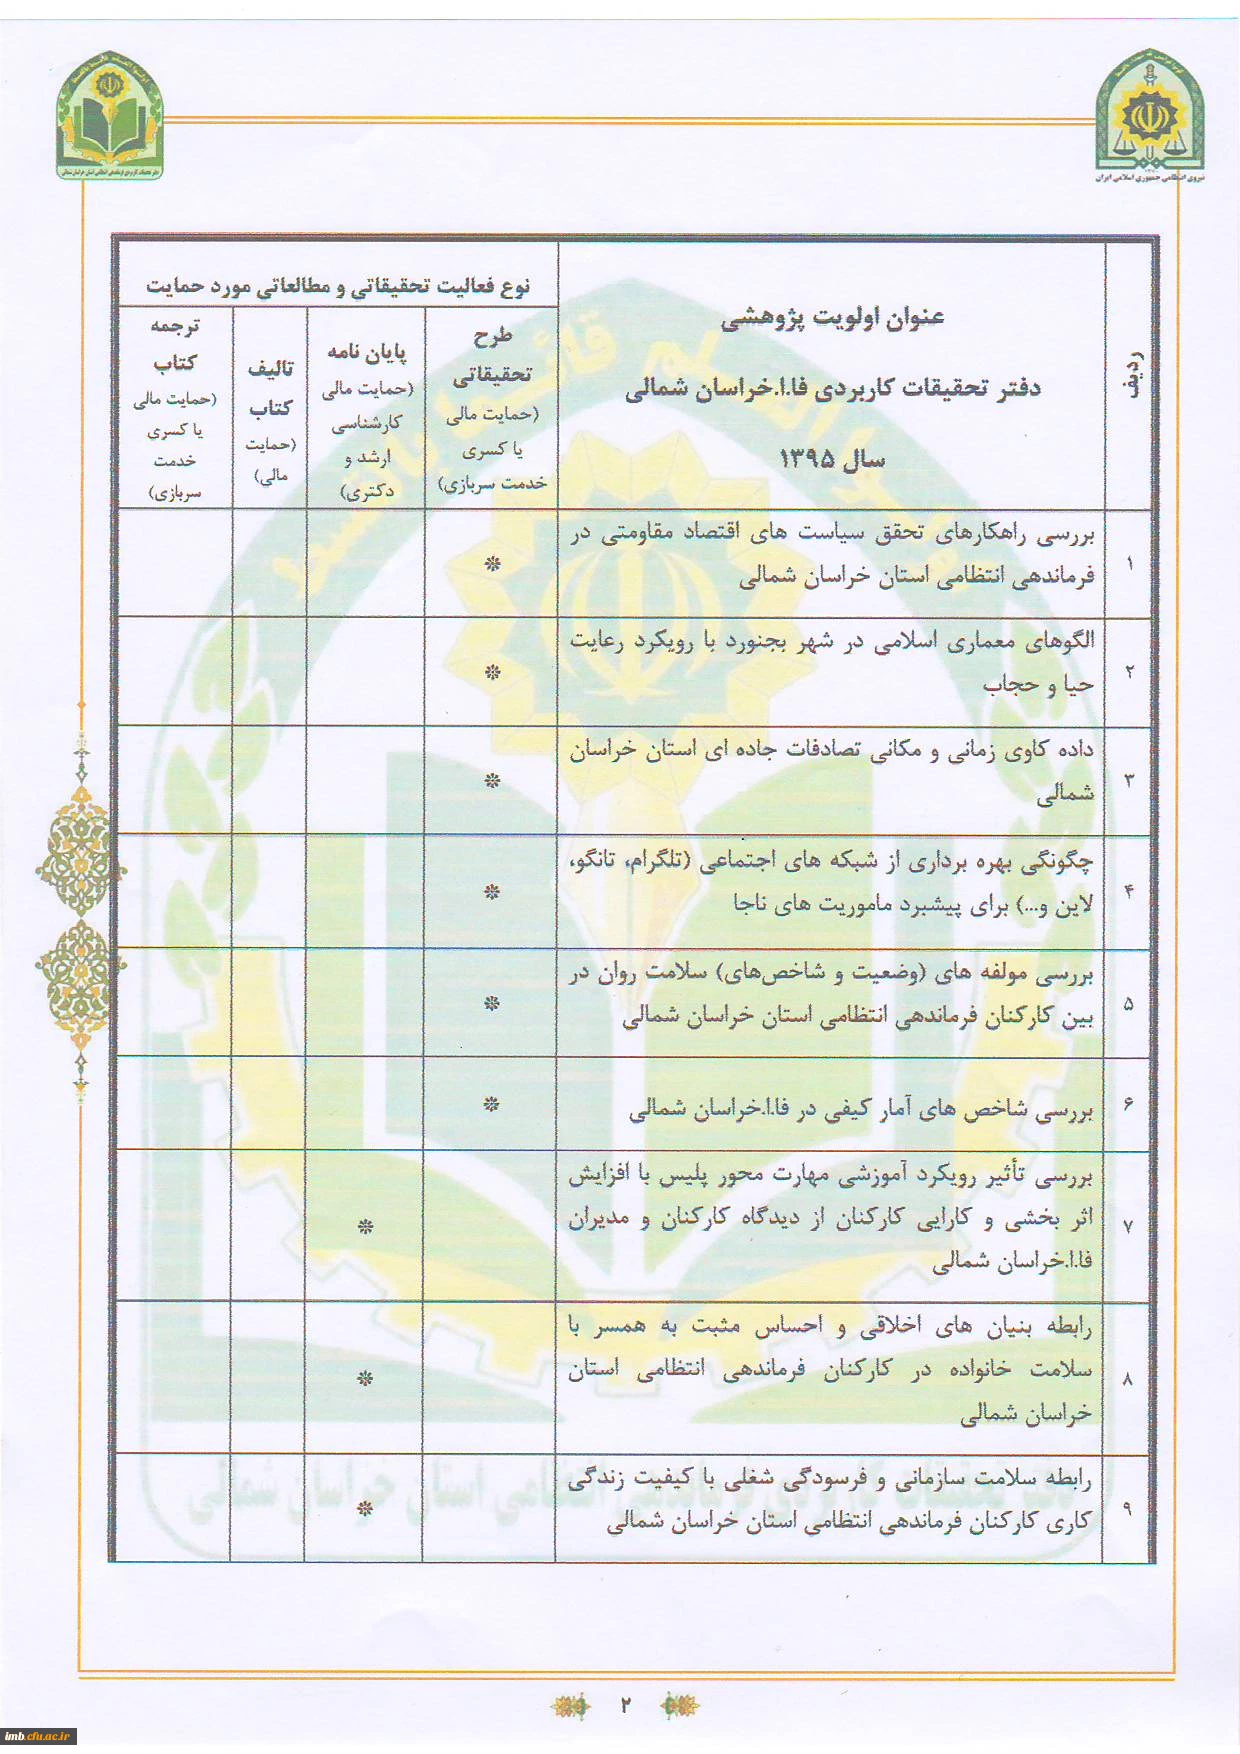 نیروی انتظامی جمهوری اسلامی ایران
ردیف
عنوان اولویت پژوهشی
دفتر تحقیقات کاربردی فا.ا.خراسان شمالی
سال ۱۳۹۵
نوع فعالیت تحقیقاتی و مطالعاتی مورد حمایت
طرح
تحقیقاتی
(حمایت مالی
یا کسری
خدمت سربازی)
پایان نامه
(حمایت مالی
کارشناسی
ارشد و
دکتری)
تالیف
کتاب
(حمایت
مالی)
ترجمه
کتاب
(حمایت مالی
یا کسری
خدمت
سربازی)
۱
بررسی راهکارهای تحقق سیاست های اقتصاد مقاومتی در
فرماندهی انتظامی استان خراسان شمالی
*
۲
الگوهای معماری اسلامی در شهر بجنورد با رویکرد رعایت
حیا و حجاب
*
۳
داده کاوی زمانی و مکانی تصادفات جاده ای استان خراسان
شمالی
*
۴
چگونگی بهره برداری از شبکه های اجتماعی (تلگرام، تانگو،
لاین و...) برای پیشبرد ماموریت های ناجا
*
۵
بررسی مولفه های (وضعیت و شاخص‌های) سلامت روان در
بین کارکنان فرماندهی انتظامی استان خراسان شمالی
*
۶
بررسی شاخص های آمار کیفی در فا.ا.خراسان شمالی
*
۷
بررسی تأثیر رویکرد آموزشی مهارت محور پلیس با افزایش
اثر بخشی و کارایی کارکنان از دیدگاه کارکنان و مدیران
فا.ا.خراسان شمالی
*
۸
رابطه بنیان های اخلاقی و احساس مثبت به همسر با
سلامت خانواده در کارکنان فرماندهی انتظامی استان
خراسان شمالی
*
۹
رابطه سلامت سازمانی و فرسودگی شغلی با کیفیت زندگی
کاری کارکنان فرماندهی انتظامی استان خراسان شمالی
*
۲
imb.cfu.ac.ir